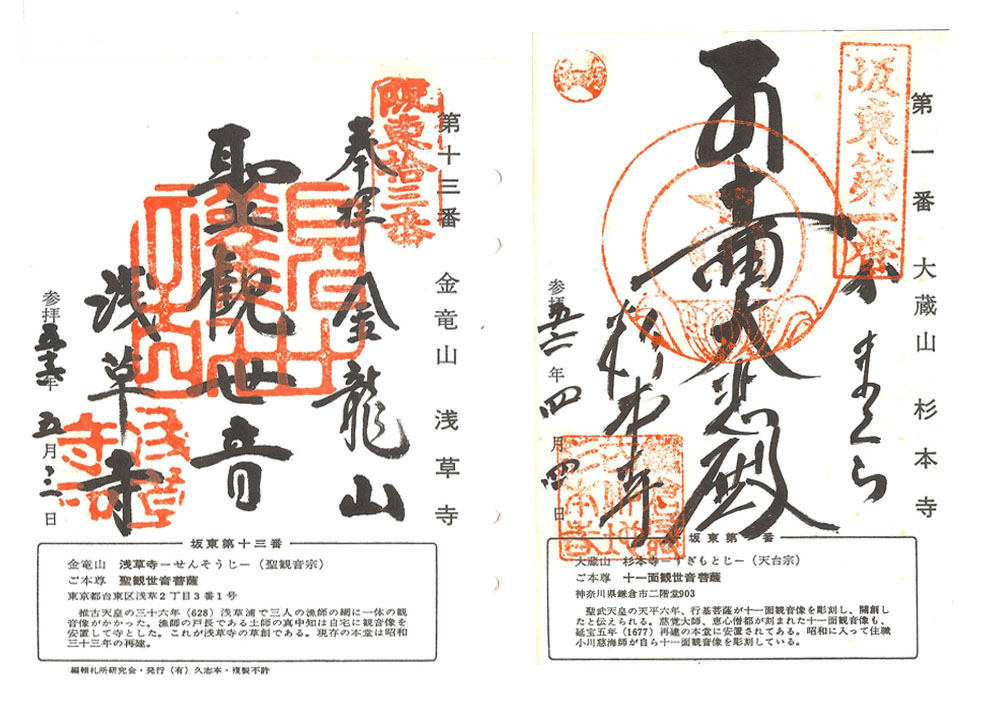 第一番 大蔵山 杉本寺
坂東第一番
かまくら
十一面大悲殿
杉本寺
参拝 年四月四日
坂東第一番
大蔵山 杉本寺−すぎもとじ−(天台宗)
ご本尊 十一面観世音菩薩
神奈川県鎌倉市二階堂903
聖武天皇の天平六年、行基菩薩が十一面観音像を彫刻し、開創し
たと伝えられる。慈覚大師、恵心僧都が刻まれた十一面観音像も、
延宝五年(1677)再建の本堂に安置されてある。昭和に入って住職
小川慈海師が自ら十一面観音像を彫刻している。
第十三番 金竜山 浅草寺
阪東拾三番
奉拝 金龍山
聖観世音
浅草寺
参拝 年五月 日
坂東第十三番
金竜山 浅草寺−せんそうじ−(聖観音宗)
ご本尊 聖観世音菩薩
東京都台東区浅草2丁目3番1号
推古天皇の三十六年(628)浅草浦で三人の漁師の網に一体の観
音像がかかった。漁師の戸長である土師の真中知は自宅に観音像を
安置して寺とした。これが浅草寺の草創である。現存の本堂は昭和
三十三年の再建。
編輯札所研究会・発行(有)久志本・複製不許